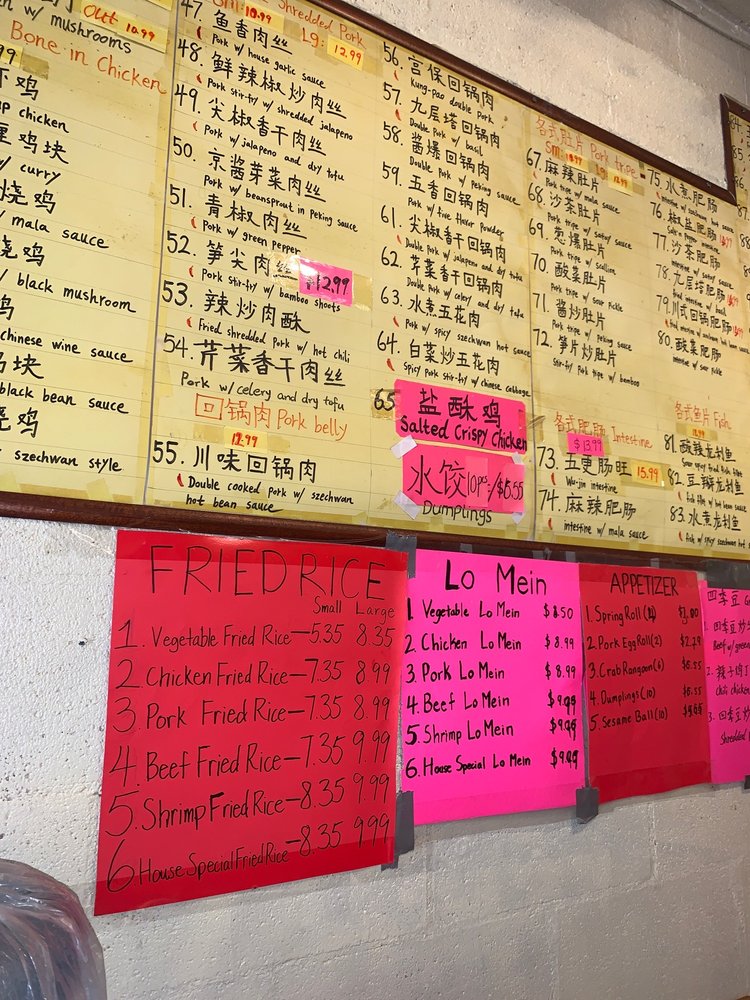 w/ mushrooms
Out 10.99
Bone in Chicken
鸡
chicken
鸡块
w/ curry
烧鸡
w/ mala sauce
鸡
w/ black mushroom
鸡
chinese wine sauce
鸡块
black bean sauce
鸡
szechwan style
Shredded Pork
Sml: 10.99
Lg: 12.99
47. 鱼香肉丝
Pork w/ house garlic sauce
48. 鲜辣椒炒肉丝
Pork stir-fry w/ shredded jalapeno
49. 尖椒香干肉丝
Pork w/ jalapeno and dry tofu
50. 京酱芽菜肉丝
Pork w/ beansprout in Peking sauce
51. 青椒肉丝
Pork w/ green pepper
52. 笋尖肉丝
$12.99
Pork stir-fry w/ bamboo shoots
53. 辣炒肉酥
Fried shredded pork w/ hot chili
54. 芹菜香干肉丝
Pork w/ celery and dry tofu
回锅肉 Pork belly
12.99
55. 川味回锅肉
Double cooked pork w/ szechwan
hot bean sauce
56. 宫保回锅肉
Kung-pao double pork
57. 九层塔回锅肉
Double Pork w/ basil
58. 酱爆回锅肉
Double Pork w/ Peking sauce
59. 五香回锅肉
Pork w/ five flavor powder
61. 尖椒香干回锅肉
Double Pork w/ jalapeno and dry tofu
62. 芹菜香干回锅肉
Double Pork w/ celery and dry tofu
63. 水煮五花肉
Pork w/ spicy szechwan hot sauce
64. 白菜炒五花肉
Spicy Pork stir-fry w/ chinese cabbage
65 盐酥鸡
Salted Crispy Chicken
水饺 10pcs/$5.55
Dumplings
各式肚片 Pork tripe
Sm: 10.99 Lg: 12.99
67. 麻辣肚片
Pork tripe w/ mala sauce
68. 沙茶肚片
Pork tripe w/ satay sauce
69. 葱爆肚片
Pork tripe w/ scallion
70. 酸菜肚片
Pork tripe w/ sour pickle
71. 酱炒肚片
Pork tripe w/ peking sauce
72. 笋片炒肚片
Pork tripe stir-fry w/ bamboo
各式肥肠 Intestine
$13.99
73. 五更肠旺 15.99
Wu-jin intestine
74. 麻辣肥肠
intestine w/ mala sauce
75. 水煮肥肠
76. 椒盐肥肠
77. 沙茶肥肠
intestine w/ satay sauce
78. 九层塔肥肠
fried intestine w/ basil
79. 川式回锅肥肠
80. 酸菜肥肠
intestine w/ sour pickle
各式鱼片 Fish
12.99
81 酸辣龙利鱼
Sour spicy fried fish fillet
82. 豆瓣龙利鱼
fish fillet w/ hot bean sauce
83. 水煮龙利鱼
fish w/ spicy szechwan hot
84.
85.
86
FRIED RICE
Small Large
1. Vegetable Fried Rice—5.35 8.35
2 Chicken Fried Rice—7.35 8.99
3. Pork Fried Rice—7.35 8.99
4 Beef Fried Rice—7.35 9.99
5. Shrimp Fried Rice—8.35 9.99
6 House Special Fried Rice—8.35 9.99
Lo Mein
1. Vegetable Lo Mein $8.50
2. Chicken Lo Mein $8.99
3. Pork Lo Mein $8.99
4. Beef Lo Mein $9.99
5. Shrimp Lo Mein $9.99
6. House Special Lo Mein $9.99
APPETIZER
1. Spring Roll (2) $3.00
2. Pork Egg Roll (2) $2.29
3. Crab Rangoon (6) $5.55
4. Dumplings (10) $5.55
5. Sesame Ball (10) $5.55
四季豆
1. 四季豆炒
Beef w/ green
2. 辣子鸡丁
chili chicken
3. 四季豆炒
Shredded